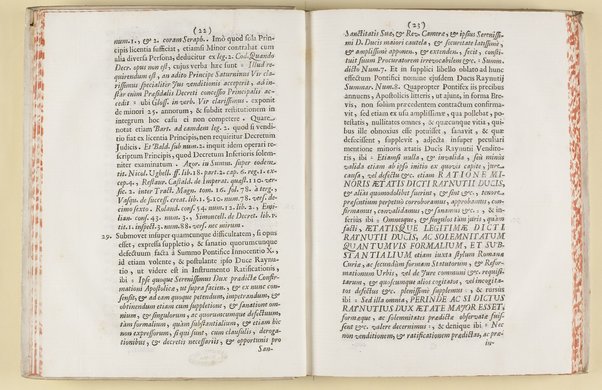 (22)
num.1., & 2. coram Seraph.. Imò quod sola Prin-
cipis licentia sufficiat, etiamsi Minor contrahat cum
alia diversa Persona, deducitur ex leg. 2. Cod. Quando
Decr. opus non est, cujus verba hæc sunt = Illud re-
quirendum est, an adito Principe Saturninus Vir cla-
rissimus specialiter Jus venditionis acceperit, ad in-
star enim Præsidalis Decreti concessio Principalis ac-
cedit = ubi Gloss. in verb. Vir clarissimus. exponit
de minori 25. annorum, & subdit restitutionem in
integrum hoc casu ei non competere. Quare
notat etiam Bart. ad eamdem leg. 2. quod si vendi-
tio fiat ex licentia Principis, non requiritur Decretum
Judicis. Et Bald. sub num.2. inquit idem operari re-
scriptum Principis, quod Decretum Inferioris solem-
iter examinatum. Agor. in Summ. super eodem
tit. Nicol. Ughell. ff. lib. 18. part. 2. cap. 6. reg. 1. ex-
cep.4., Restaur. Castald. de Imperat. quæst. 110. ver-
sic. 2. inter Tract. Magn. tom. 16. fol. 78. à terg.,
Vasqu. de success. creat. lib. 1. §. 10. num. 78. vers. de-
cimo sexto. Roland. cons. 54. num. 12. lib. 2., Emi-
lian. cons. 43. num. 3., Simoncell. de Decret. lib. 1.
tit. 1. inspect. 3. num. 88. vers. nec mirum.
29. Submovet insuper quamcunque difficultatem, si opus
esset, expressa suppletio, & sanatio quorumcunque
defectuum facta à Summo Pontifice Innocentio X.,
id etiam volente, & postulante ipso Duce Raynu-
tio, ut videre est in Instrumento Ratificationis,
ibi = Ipse quoque Serenissimus Dux prædictæ Confir-
mationi Apostolicæ, ut supra faciem, & ex nunc con-
sensit, & ad eam quoque petendam, impetrandam, &
obtinendam etiam cum suppletione, & sanatione om-
nium, & singulorum, ac quorumcumque defectuum,
tam formalium, quàm substantialium, & etiam hic
non expressorum, si qui sunt, cum clausulis, deroga-
tionibus, & decretis necessariis, & opportunis pro
San-
(23)
Sanctitatis Suæ, & Rev. Cameræ, & ipsius Serenissi-
mi D. Ducis majori cautela, & securitate latissimè,
& amplissimè apponen., & extenden., fecit, consti-
tuit suum Procuratorem irrevocabilem &c. = Summ.
dicto Num.7. Et in supplici libello oblato ad hunc
effectum Pontifici nomine ejusdem Ducis Raynutii
Summar. Num.8. Quapropter Pontifex iis precibus
annuens, Apostolicis litteris, ut ajunt, in forma Bre-
vis, non solùm præcedentem contractum confirma-
vit, sed etiam ex usu amplissimæ, qua pollebat, po-
testatis, nullitates omnes, & quæcunque vitia, qui-
bus ille obnoxius esse potuisset, sanavit, & quæ
defecissent, supplevit, adjecta insuper peculiari
mentione minoris ætatis Ducis Raynutii Vendito-
ris, ibi = Etiamsi nulla, & invalida, seu minùs
valida etiam ab ipso initio ex quavis capite, seu
causa, vel defectu &c. etiam RATIONE MI-
NORIS ÆTATIS DICTI RAYNUTII DUCIS,
& aliàs quomodolibet fuerint, & sint &c., tenore
præsentium perpetuò corroboramus, approbamus, con-
firmamus, convalidamus, & sanamus &c., & in-
feriùs ibi = Omnesque, & singulos tam juris, quàm
facti, ÆTATISQUE LEGITIMÆ DICTI
RAYNUTII DUCIS, AC SOLEMNITATUM
QUANTUMVIS FORMALIUM, ET SUB-
STANTIALIUM etiam juxta stylum Romanæ
Curiæ, ac secundùm formam Statutorum, & Refor-
mationum Urbis, vel de Jure communi &c. requisi-
tarum, & quoscumque alios cogitatos, vel incogita-
tos defectus &c. plenissimè supplemus =, & rursus
ibi = Sed illa omnia, PERINDE AC SI DICTUS
RAYNUTIUS DUX ÆTATE MAJOR ESSET,
formæque, ac solemnitates prædictæ observatæ fuis-
sent &c. valere decernimus =, & denique ibi = Nec
non venditionem, & ratificationem prædictas, ac præ-
in-